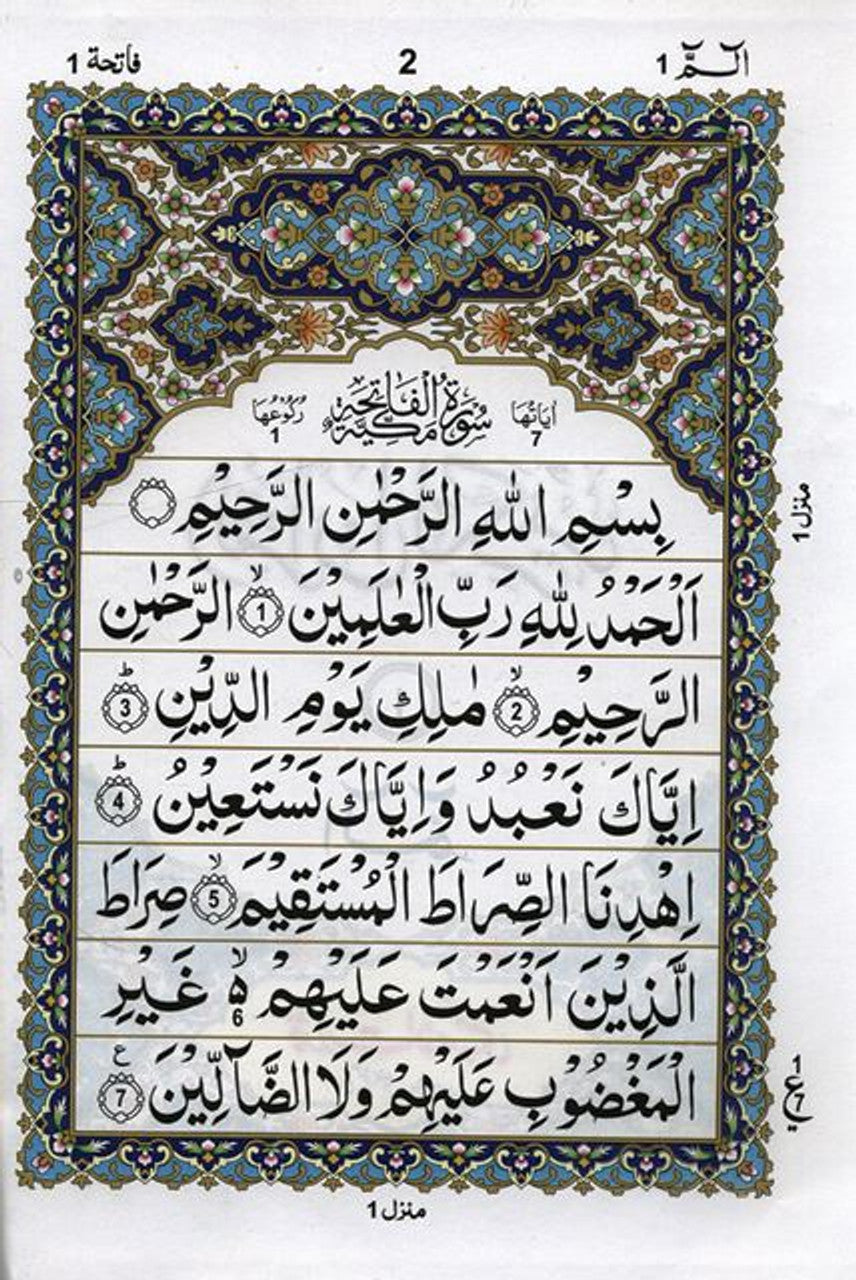 الٓـمّٓ 1 2 فاتحة 1
اٰيَاتُهَا 7 سُوْرَةُ الْفَاتِحَةِ مَكِّيَّةٌ رُكُوْعُهَا 1
بِسْمِ اللهِ الرَّحْمٰنِ الرَّحِيْمِ
اَلْحَمْدُ لِلّٰهِ رَبِّ الْعٰلَمِيْنَ ۙ 1 الرَّحْمٰنِ
الرَّحِيْمِ ۙ 2 مٰلِكِ يَوْمِ الدِّيْنِ ؕ 3
اِيَّاكَ نَعْبُدُ وَاِيَّاكَ نَسْتَعِيْنُ ؕ 4
اِهْدِنَا الصِّرَاطَ الْمُسْتَقِيْمَ ۙ 5 صِرَاطَ
الَّذِيْنَ اَنْعَمْتَ عَلَيْهِمْ ۙ ه 6 غَيْرِ
الْمَغْضُوْبِ عَلَيْهِمْ وَلَا الضَّآلِّيْنَ ع 7
منزل 1
1 ع 7
منزل 1